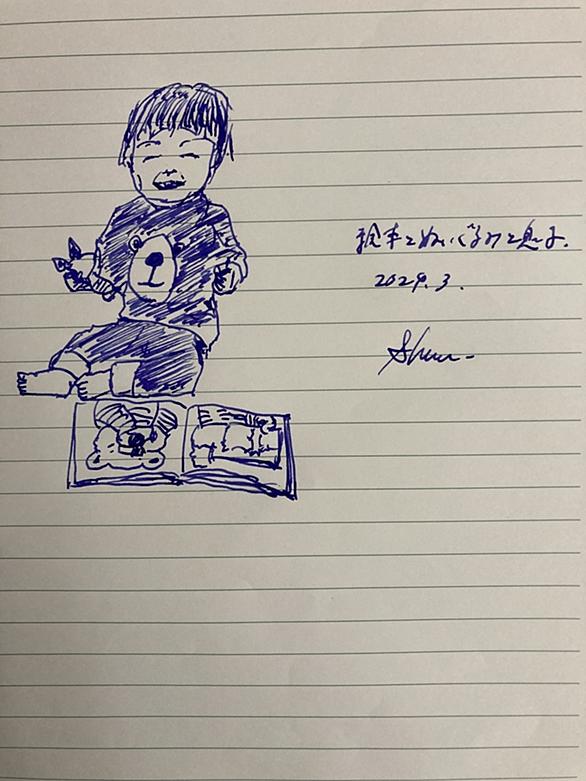 絵本とぬいぐるみと息子.
2029.3.
Shun